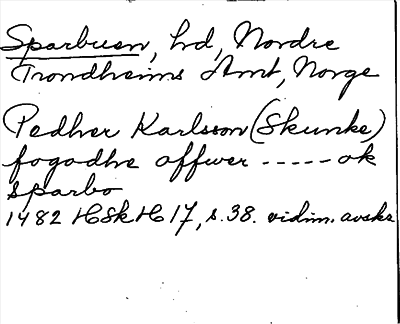 Sparbuen, hd, Nordre
Trondheims Amt, Norge
Pedher Karlsson (Skunke)
fogodhe offwer ----- ok
Sparbo
1482 HSkH 17, s. 38. vidim. avskr